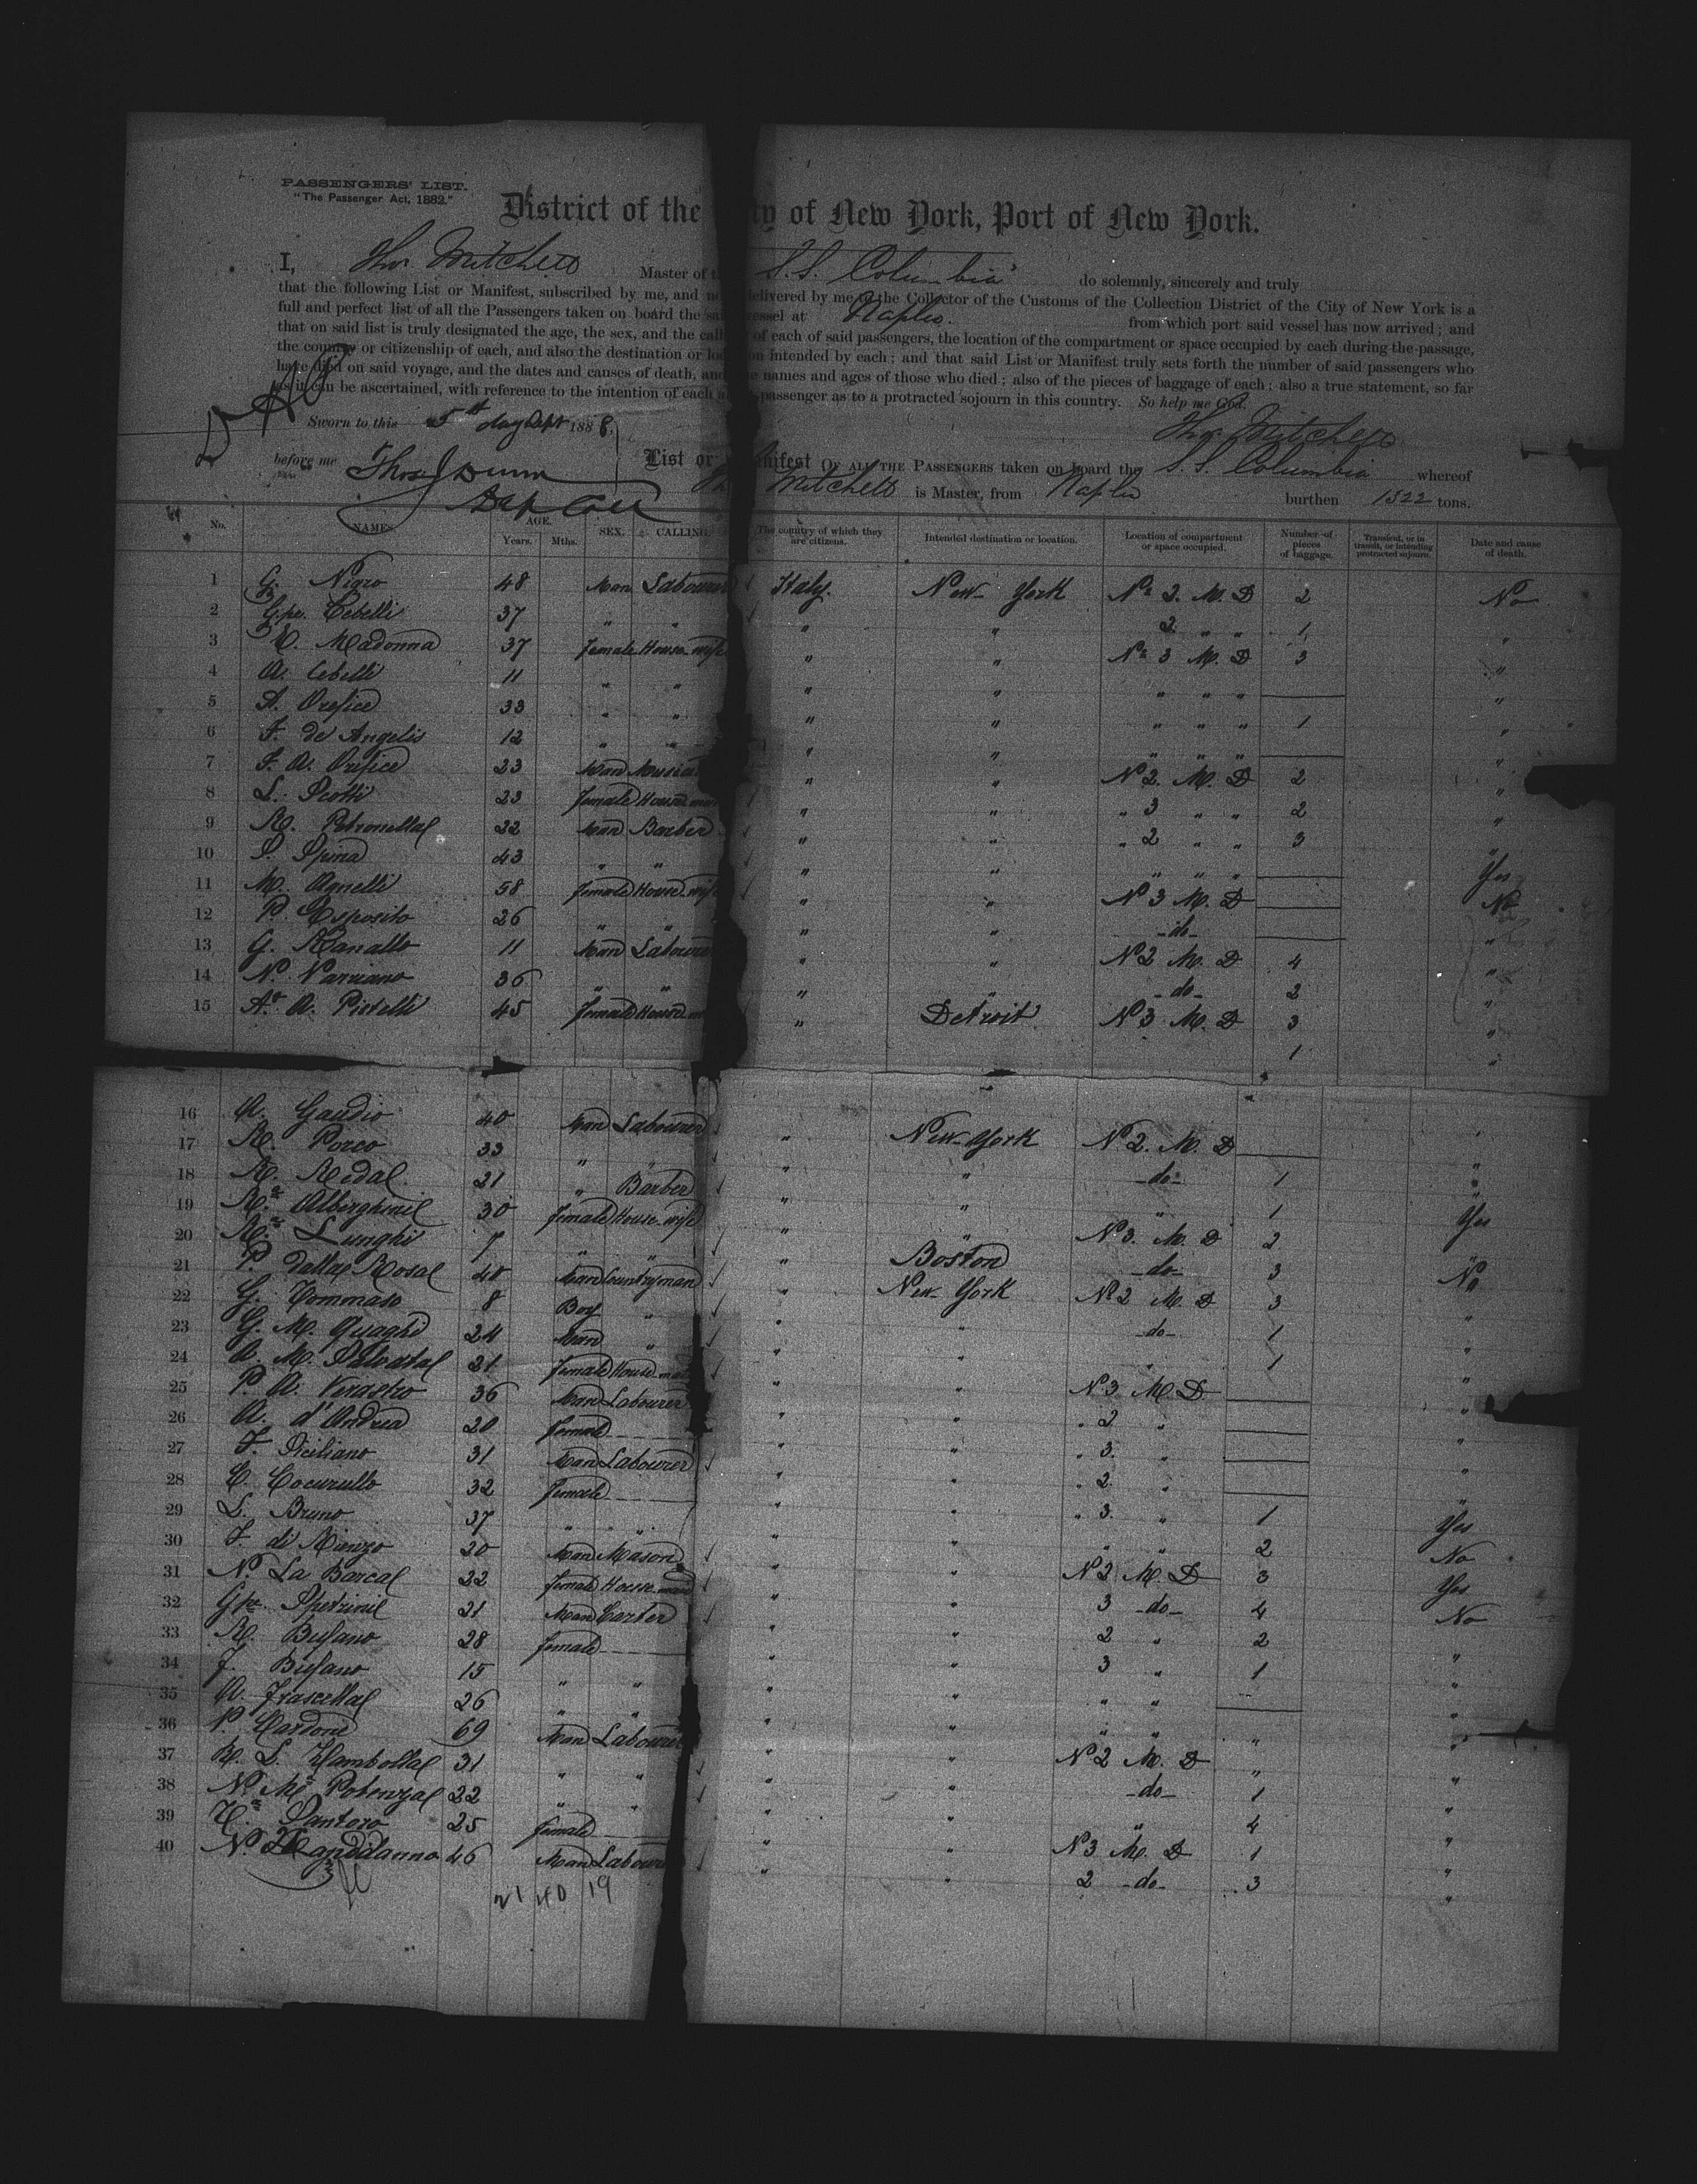 PASSENGERS' LIST.
"The Passenger Act, 1882."
District of the ty of New York, Port of New York.
I, Thos. Mitchell Master of t S.S. Columbia do solemnly, sincerely and truly
that the following List or Manifest, subscribed by me, and no delivered by me to the Collector of the Customs of the Collection District of the City of New York is a
full and perfect list of all the Passengers taken on board the sai vessel at Naples. from which port said vessel has now arrived; and
that on said list is truly designated the age, the sex, and the call of each of said passengers, the location of the compartment or space occupied by each during the passage,
the country or citizenship of each, and also the destination or loc on intended by each; and that said List or Manifest truly sets forth the number of said passengers who
have died on said voyage, and the dates and causes of death, and names and ages of those who died; also of the pieces of baggage of each; also a true statement, so far
as it can be ascertained, with reference to the intention of each passenger as to a protracted sojourn in this country. So help me God.
Sworn to this 5th day Sept 1888, Thos. Mitchell
before me Thos J Dunn List or nifest OF ALL THE PASSENGERS taken on board the S.S. Columbia whereof
Dep Coll Mitchell is Master, from Naples burthen 1322 tons.
No. NAMES. AGE. Years. Mths. SEX. CALLING. The country of which they are citizens. Intended destination or location. Location of compartment or space occupied. Number of pieces of baggage. Transient, or in transit, or intending protracted sojourn. Date and cause of death.
1 G. Nigro 48 Man Labourer Italy. New York No 2. M. D 2 No
2 Gpe. Cebelli 37 " " " " 2 " " 1 "
3 C. Madonna 37 Female House wife " " No 3 M. D 3 "
4 A. Cebelli 11 " " " " " " " "
5 A. Orefice 33 " " " " " " " 1 "
6 F. de Angelis 12 " " " " " " " "
7 F. A. Orefice 23 Man Musici " " N 2. M. D 2 "
8 L. Scotti 23 Female House " " " 3 " " 2 "
9 R. Petronella 22 Man Barber " " " 2 " " 3 "
10 S. Spina 43 " " " " " " " Yes
11 M. Agnelli 58 Female House wife " " N 3 M. D No
12 P. Esposito 26 " " " " -do- "
13 G. Ranallo 11 Man Labourer " " N 2 M. D 4 "
14 N. Varriano 36 " " " " -do- 2 "
15 A. Pistelli 45 Female House " Detroit N 3 M. D 3 "
1 "
16 A. Gaudio 40 Man Labourer " New York N 2. M. D
17 R. Porco 33 " " " " -do- 1 "
18 R. Reda 21 " Barber " " " 1 Yes
19 Alberghini 30 Female House wife " " N 3. M. D 2 "
20 Lunghi 7 " " " Boston -do- 3 No
21 P. dalla Rosa 40 Man Countryman " New York N 2 M. D 3 "
22 G. Tommaso 8 Boy " " " -do- 1 "
23 G. M. Quaghi 24 Man " " " " 1 "
24 A. M. 21 Female House " " N 3 M. D "
25 P. A. Verastro 36 Man Labourer " " " 2 " "
26 A. d'Andrea 20 Female " " " 3. " "
27 F. Siciliano 31 Man Labourer " " " 2. " "
28 C. Cocurullo 32 Female " " " 3. " 1 Yes
29 L. Bruno 37 " " " " " " 2 No
30 F. di Rienzo 20 Man Mason " " N 2 M. D 3 Yes
31 N. La Barca 22 Female House maid " " 3 -do- 4 No
32 Gpe. Spetrini 21 Man Carter " " 2 " 2 "
33 R. Bufano 28 Female " " 3 " 1 "
34 F. Bufano 15 " " " " " " "
35 A. Frascella 26 " " " " " " " "
36 P. Cardone 69 Man Labourer " " N 2 M. D " "
37 R. L. Zambolla 31 " " " " -do- 1 "
38 N. Potenza 22 " " " " " 4 "
39 Santoro 25 Female " " N 3 M. D 1 "
40 N. 46 Man Labourer " " 2 -do- 3 "
21 40 19